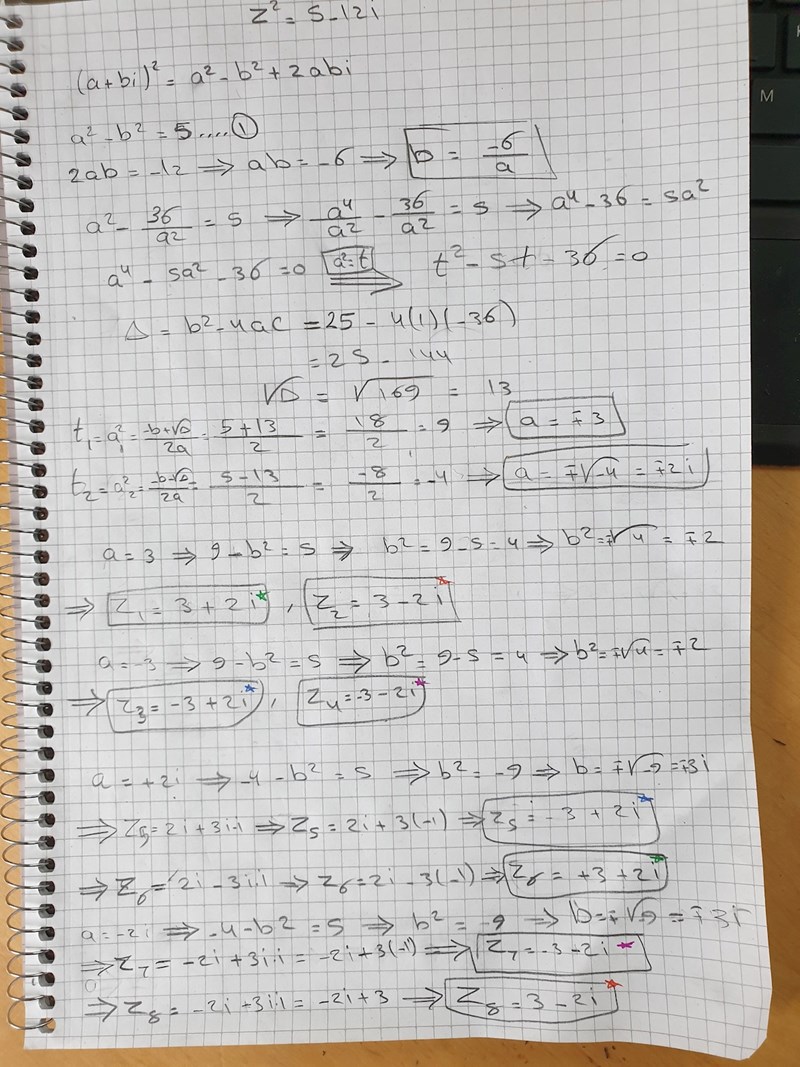 z² = 5 - 12i
(a+bi)² = a² - b² + 2abi
a² - b² = 5 ....①
2ab = -12 ⇒ ab = -6 ⇒ b = -6/a
a² - 36/a² = 5 ⇒ a⁴/a² - 36/a² = 5 ⇒ a⁴ - 36 = 5a²
a⁴ - 5a² - 36 = 0 a²=t ⇒ t² - 5t - 36 = 0
Δ = b² - 4ac = 25 - 4(1)(-36)
= 25 - 144
√Δ = √169 = 13
t₁ = a₁² = (-b+√Δ)/2a = (5+13)/2 = 18/2 = 9 ⇒ a = ∓3
t₂ = a₂² = (-b-√Δ)/2a = (5-13)/2 = -8/2 = -4 ⇒ a = ∓√-4 = ∓2i
a = 3 ⇒ 9 - b² = 5 ⇒ b² = 9 - 5 = 4 ⇒ b² = ∓√4 = ∓2
⇒ Z₁ = 3 + 2i* , Z₂ = 3 - 2i*
a = -3 ⇒ 9 - b² = 5 ⇒ b² = 9 - 5 = 4 ⇒ b² = ∓√4 = ∓2
⇒ Z₃ = -3 + 2i* , Z₄ = -3 - 2i*
a = +2i ⇒ -4 - b² = 5 ⇒ b² = -9 ⇒ b = ∓√-9 = ∓3i
⇒ Z₅ = 2i + 3i·i ⇒ Z₅ = 2i + 3(-1) ⇒ Z₅ = -3 + 2i*
⇒ Z₆ = 2i - 3i·i ⇒ Z₆ = 2i - 3(-1) ⇒ Z₆ = +3 + 2i*
a = -2i ⇒ -4 - b² = 5 ⇒ b² = -9 ⇒ b = ∓√-9 = ∓3i
⇒ Z₇ = -2i + 3i·i = -2i + 3(-1) ⇒ Z₇ = -3 - 2i*
⇒ Z₈ = -2i + 3i·i = -2i + 3 ⇒ Z₈ = 3 - 2i*
M